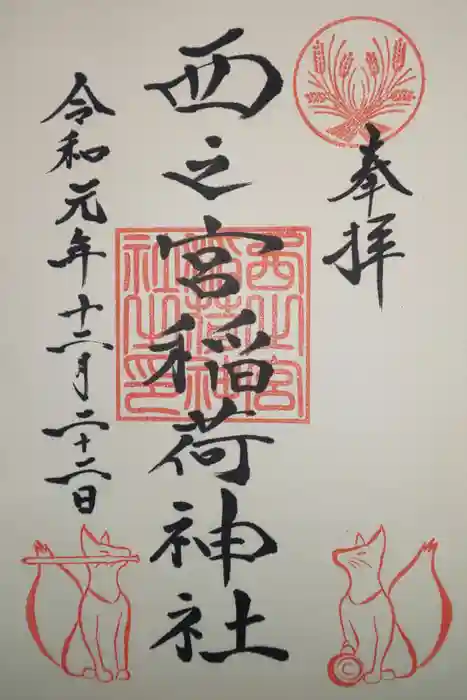 奉拝
西之宮稲荷神社
西之宮稲荷神社之印
令和元年十二月二十二日